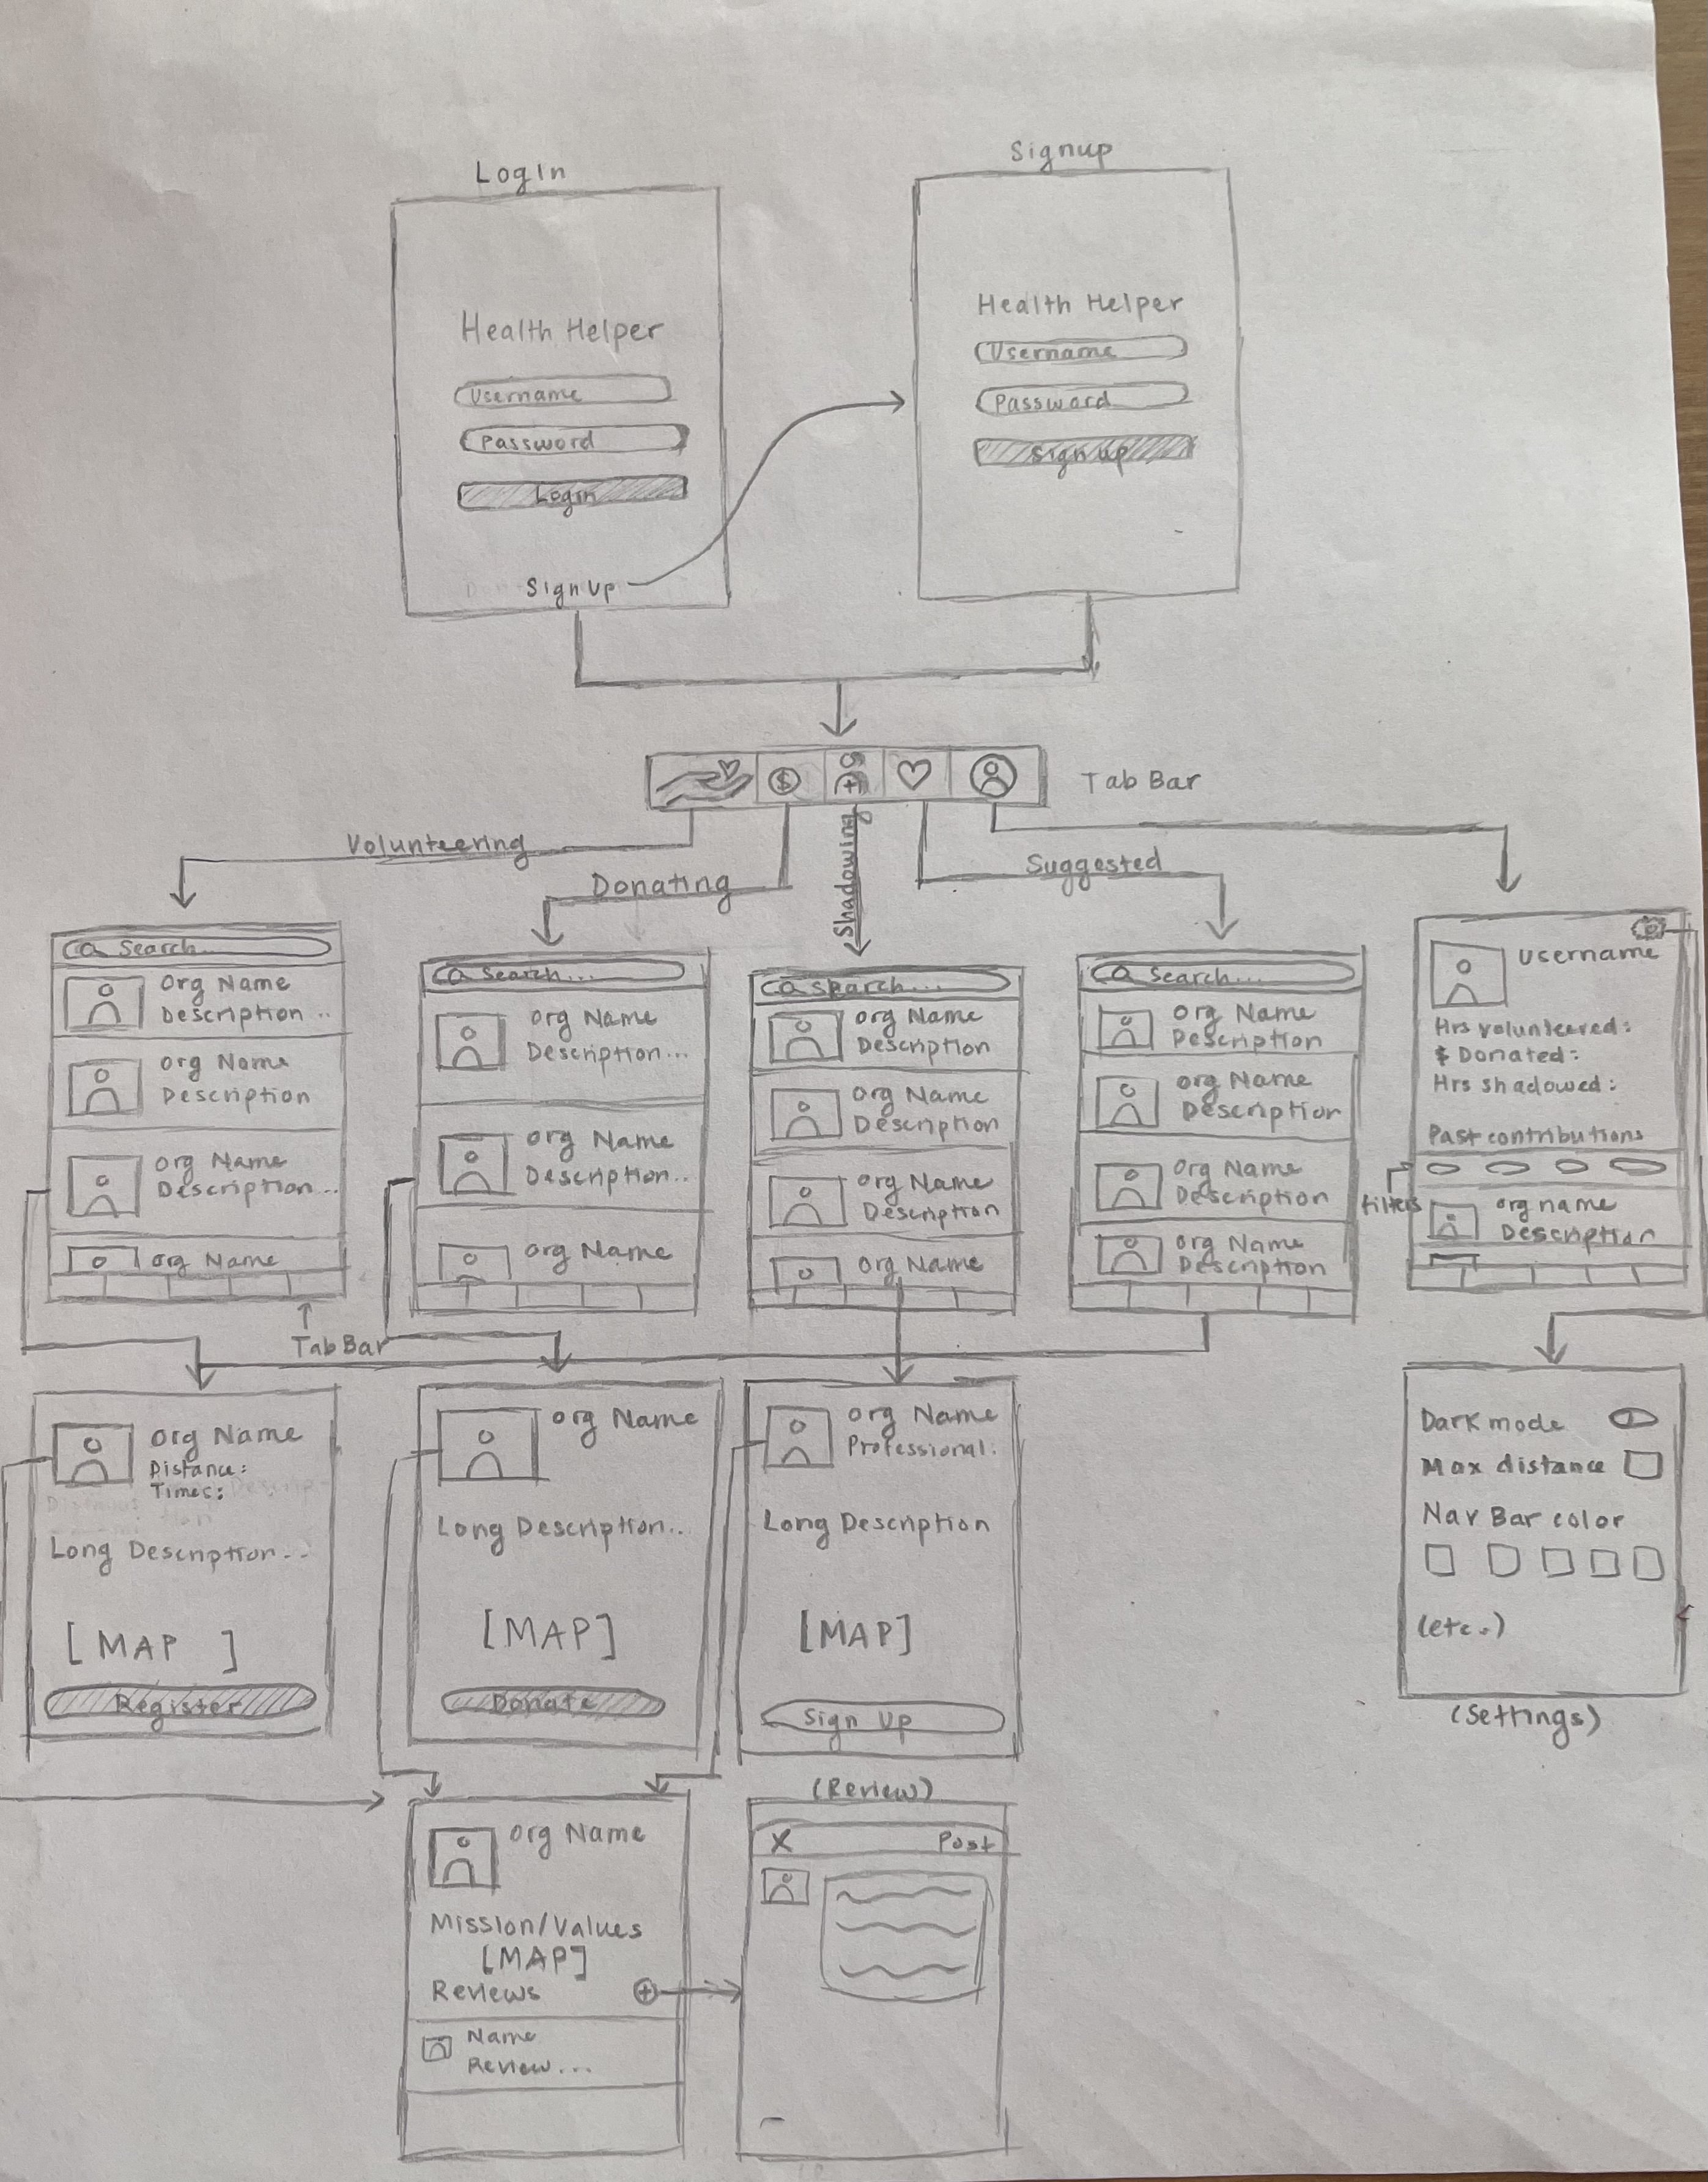 Log In
Signup
Health Helper
Username
Password
Login
Sign Up
Health Helper
Username
Password
Sign Up
Tab Bar
Volunteering
Donating
Shadowing
Suggested
Search...
Org Name
Description ..
Org Name
Description
Org Name
Description...
Org Name
Tab Bar
Search...
Org Name
Description...
Org Name
Description..
Org Name
Search...
Org Name
Description
Org Name
Description
Org Name
Description
Org Name
Search...
Org Name
Description
Org Name
Description
Org Name
Description
Org Name
Description
Username
Hrs volunteered:
$ Donated:
Hrs shadowed:
Past contributions
filters
org name
Description
Org Name
Distance:
Times:
Long Description...
[MAP ]
Register
Org Name
Long Description..
[MAP]
Donate
Org Name
Professional:
Long Description
[MAP]
Sign Up
Dark mode
Max distance
Nav Bar color
(etc.)
(Settings)
Org Name
Mission/Values
[MAP]
Reviews
Name
Review...
(Review)
X Post